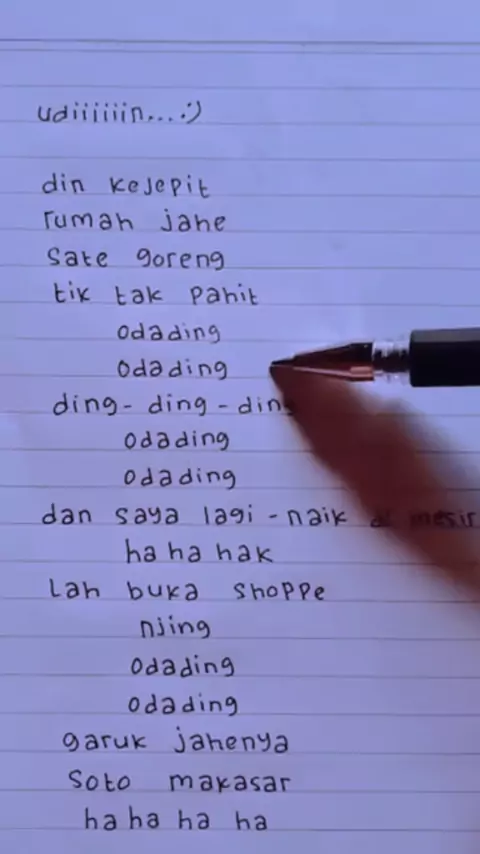 udiiiiiin....:)
din kejepit
rumah jahe
sate goreng
tik tak pahit
odading
odading
ding- ding - ding
odading
odading
dan saya lagi - naik di mesir
ha ha hak
Lah buka shoppe
njing
odading
odading
garuk jahenya
soto makasar
ha ha ha ha